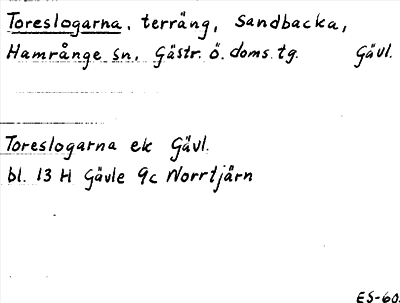 Toreslogarna, terräng, Sandbacka,
Hamrånge sn, Gästr. ö. doms. tg. Gävl.
Toreslogarna ek Gävl.
bl. 13 H Gävle 9c Norrtjärn
ES-60.